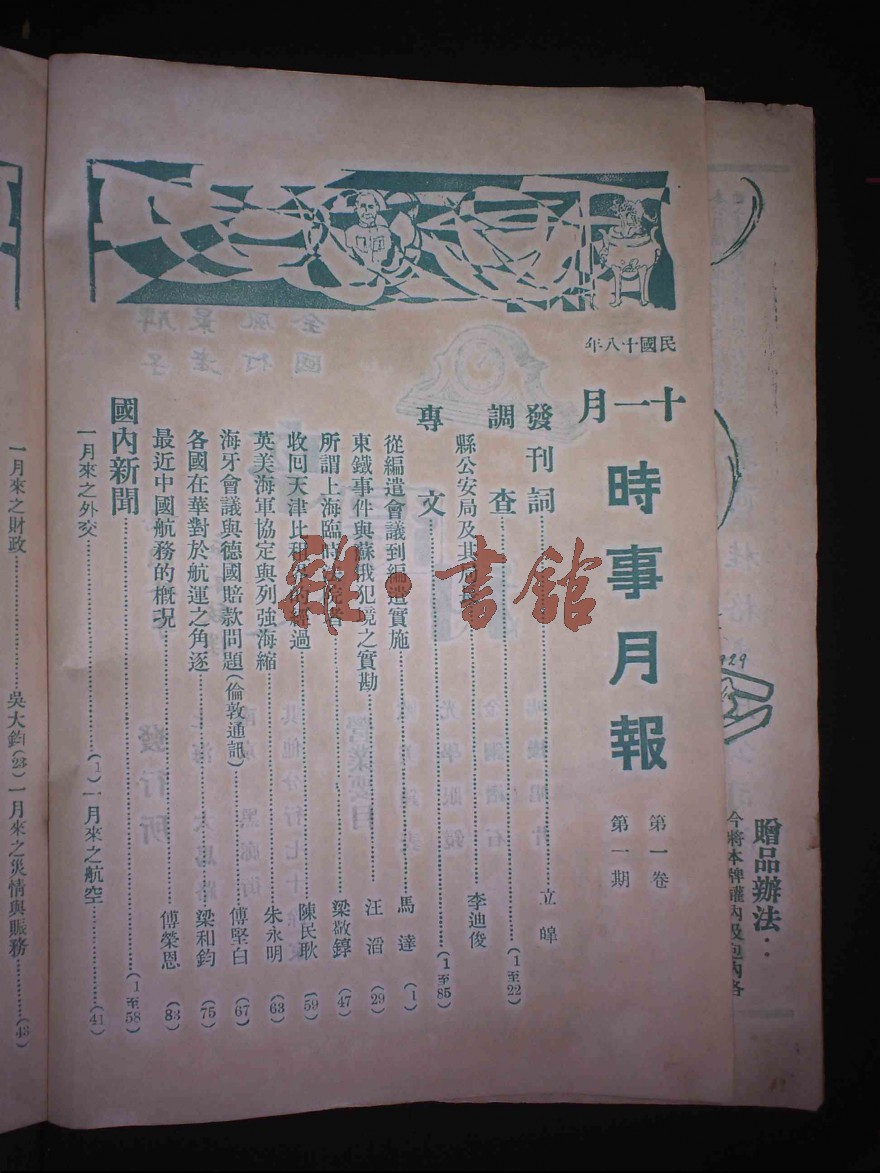 民國十八年
十一月
時事月報
第一卷
第一期
發刊詞……立皡
調查……(1至22)
縣公安局及其……李迪俊
專文……(1至85)
從編遣會議到編遣實施……馬達(1)
東鐵事件與蘇俄犯境之實勘……汪滔(29)
所謂上海臨時法院者……梁敬錞(47)
收回天津比租界的經過……陳民耿(59)
英美海軍協定與列強海縮……朱永明(63)
海牙會議與德國賠款問題(倫敦通訊)……傅堅白(67)
各國在華對於航運之角逐……梁和鈞(75)
最近中國航務的概況……傅榮恩(83)
國內新聞……(1至58)
一月來之外交……(1)一月來之航空……(41)
一月來之財政……吳大鈞(23)一月來之災情與賑務……(43)
贈品辦法：
今將本牌罐內及包內各
雜·書館